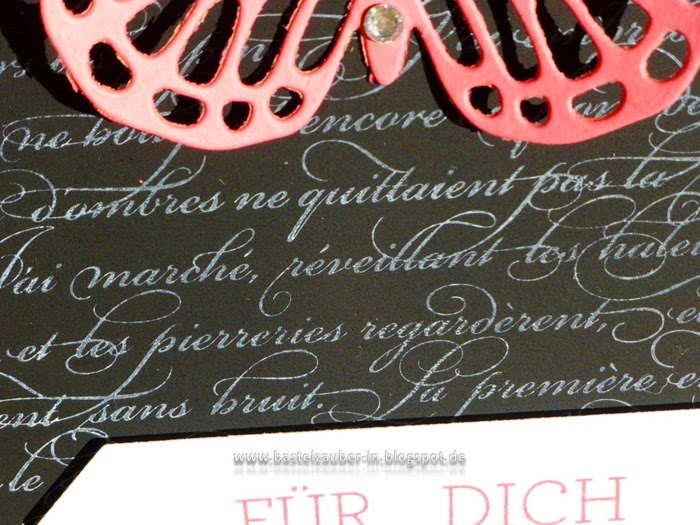 encore
d'ombres ne quittaient pas la
J'ai marché, réveillant les halei
et les pierreries regardèrent, et
ent sans bruit. La première e
le
www.bastelzauber-in.blogspot.de
FÜR DICH